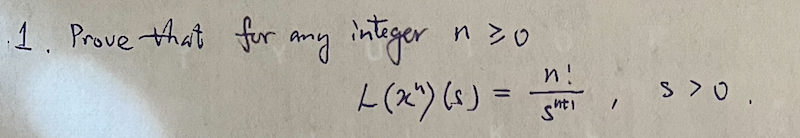 1. Prove that for any integer n ≥ 0
L(xⁿ)(s) = n!/sⁿ⁺¹ , s > 0 .